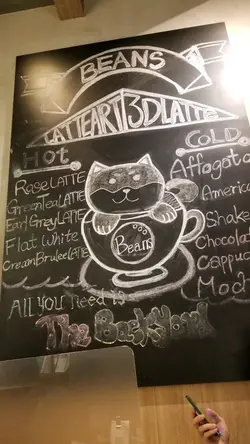 BEANS
LATTEART 3D LATTE
Hot
COLD
Rose LATTE
Greentea LATTE
Earl Grey LATTE
Flat White
Cream Brulee LATTE
Affogato
America
Shake
Chocolat
Cappuc
Moch
Beans
All you need is
The Backyard